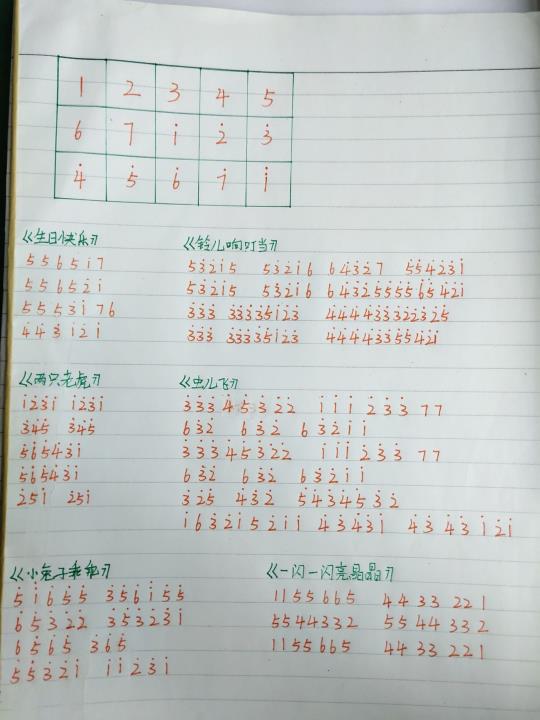 1 2 3 4 5
6 7 i̇ 2̇ 3̇
4̇ 5̇ 6̇ 7̇ i̇
《生日快乐》
5 5 6 5 i̇ 7
5 5 6 5 2̇ i̇
5 5 5̇ 3̇ i̇ 7 6
4̇ 4̇ 3̇ i̇ 2̇ i̇
《铃儿响叮当》
5 3̇ 2̇ i̇ 5 5 3̇ 2̇ i̇ 6 6 4̇ 3̇ 2̇ 7 5̇ 5̇ 4̇ 2̇ 3̇ i̇
5 3̇ 2̇ i̇ 5 5 3̇ 2̇ i̇ 6 6 4̇ 3̇ 2̇ 5̇ 5̇ 5̇ 5̇ 6̇ 5̇ 4̇ 2̇ i̇
3̇ 3̇ 3̇ 3̇ 3̇ 3̇ 3̇ 5̇ i̇ 2̇ 3̇ 4̇ 4̇ 4̇ 4̇ 3̇ 3̇ 3̇ 2̇ 2̇ 3̇ 2̇ 5̇
3̇ 3̇ 3̇ 3̇ 3̇ 3̇ 3̇ 5̇ i̇ 2̇ 3̇ 4̇ 4̇ 4̇ 4̇ 3̇ 3̇ 5̇ 5̇ 4̇ 2̇ i̇
《两只老虎》
i̇ 2̇ 3̇ i̇ i̇ 2̇ 3̇ i̇
3̇ 4̇ 5̇ 3̇ 4̇ 5̇
5̇ 6̇ 5̇ 4̇ 3̇ i̇
5̇ 6̇ 5̇ 4̇ 3̇ i̇
2̇ 5 i̇ 2̇ 5 i̇
《虫儿飞》
3̇ 3̇ 3̇ 4̇ 5̇ 3̇ 2̇ 2̇ i̇ i̇ i̇ 2̇ 3̇ 3̇ 7 7
6 3̇ 2̇ 6 3̇ 2̇ 6 3̇ 2̇ i̇ i̇
3̇ 3̇ 3̇ 4̇ 5̇ 3̇ 2̇ 2̇ i̇ i̇ i̇ 2̇ 3̇ 3̇ 7 7
6 3̇ 2̇ 6 3̇ 2̇ 6 3̇ 2̇ i̇ i̇
3̇ 2̇ 5̇ 4̇ 3̇ 2̇ 5̇ 4̇ 3̇ 4̇ 5̇ 3̇ 2̇
i̇ 6 3̇ 2̇ i̇ 5 2̇ i̇ i̇ 4̇ 3̇ 4̇ 3̇ i̇ 4̇ 3̇ 4̇ 3̇ i̇ 2̇ i̇
《小兔子乖乖》
5̇ i̇ 6̇ 5̇ 5̇ 3̇ 5̇ 6̇ i̇ 5̇ 5̇
6̇ 5̇ 5̇ 3̇ 2̇ 2̇ 3̇ 5̇ 3̇ 2̇ 3̇ i̇
6̇ 5̇ 6̇ 5̇ 3̇ 6̇ 5̇
5̇ 5̇ 3̇ 2̇ i̇ i̇ i̇ 2̇ 3̇ i̇
《一闪一闪亮晶晶》
1 1 5 5 6 6 5 4 4 3 3 2 2 1
5 5 4 4 3 3 2 5 5 4 4 3 3 2
1 1 5 5 6 6 5 4 4 3 3 2 2 1